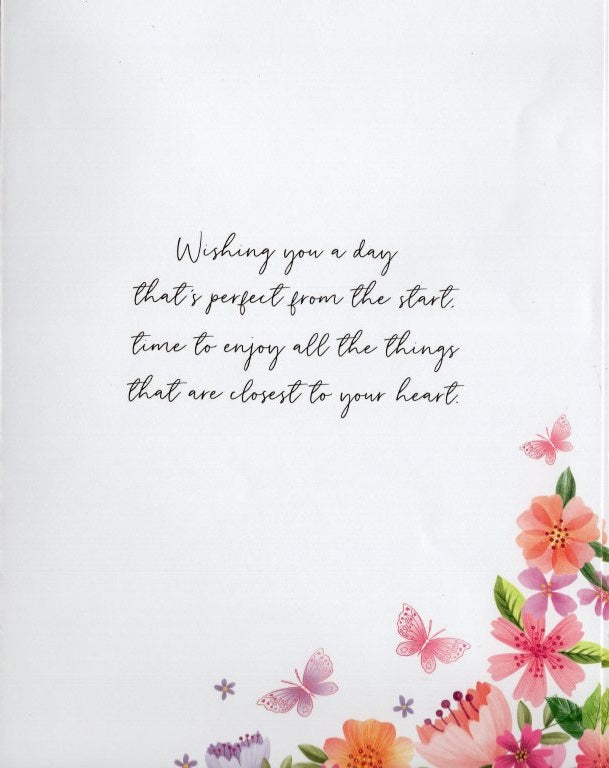 Wishing you a day
that's perfect from the start,
time to enjoy all the things
that are closest to your heart.